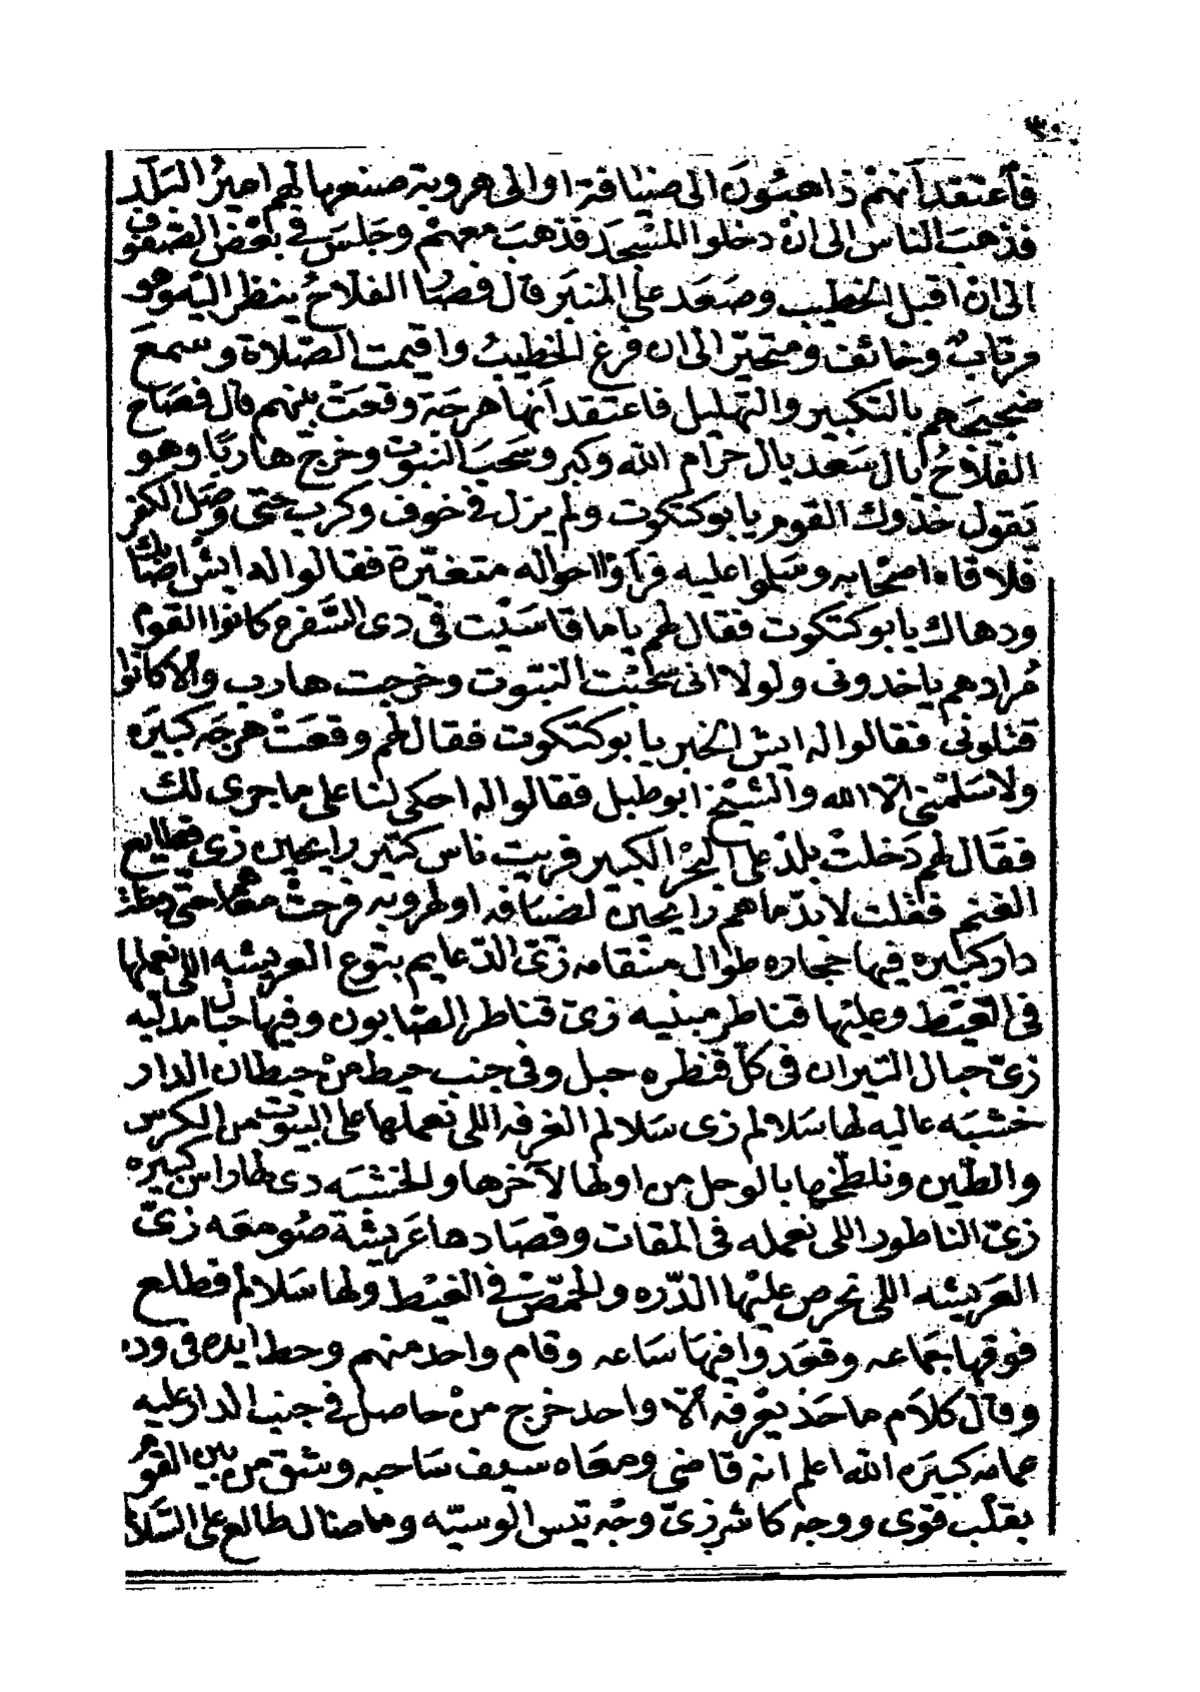 فأعتقد أنهم ذاهبون الى ضيافة او الى هروبة صنعها لهم امير البلد
فذهب الناس الى ان دخلوا المسجد فذهب معهم وجلس في بعض الصفوف
الى ان اقبل الخطيب وصعد على المنبر قال فصار الفلاح ينظر اليه وهو
مرتاب وخائف ومتحير الى ان فرغ الخطيب واقيمت الصلاة وسمع
ضجيجهم بالتكبير والتهليل فاعتقد أنها هرجة وقعت بينهم قال فصاح
الفلاح يال سعد يال حرام الله وكبر وسحب النبوت وخرج هاربا وهو
يقول خذوك القوم يا بو كتكوت ولم يزل في خوف وكرب حتى وصل الكفر
فلاقاه اصحابه وسلموا عليه فرأوا احواله متغيرة فقالوا له ايش اصابك
ودهاك يا بو كتكوت فقال لهم ياما قاسيت في دى السفره كانوا القوم
مرادهم ياخدونى ولولا انى سحبت النبوت وخرجت هارب والا كانوا
قتلونى فقالوا له ايش الخبر يا بو كتكوت فقال لهم وقعت هرجه كبيره
ولا سلمنى الا الله والشيخ ابو طبل فقالوا له احكى لنا على ما جرى لك
فقال لهم دخلت بلد على البحر الكبير فريت ناس كتير رايحين زى قطايع
الغنم فقلت لا بد ما هم رايحين لضيافه او لهروبه فرحت معاهم حتى دخلنا
دار كبيره فيها حجاره طوال منقامه زى الدعايم بتوع العريشه اللى نعملها
فى الغيط وعليها قناطر مبنيه زى قناطر الصابون وفيها حبال مدليه
زى حبال التيران فى كل قنطره حبل وفى جنب حيط من حيطان الدار
خشبه عاليه لها سلالم زى سلالم الغرفه اللى نعملها على البيوت من الكرس
والطين ونلطخها بالوحل من اولها لآخرها والخشبه دى لها راس كبيره
زى الناطور اللى نعمله فى المقات وقصادها عريشة صومعه زى
العريشه اللى نحرص عليها الدره والحمص في الغيط ولها سلالم فطلع
فوقها جماعه وقعدوا فيها ساعه وقام واحد منهم وحط ايده فى ودنه
وقال كلام ما حد يعرفه الا واحد خرج من حاصل في جنب الدار عليه
عمامه كبيره الله اعلم انه قاضى ومعاه سيف ساحبه وشق من بين القوم
بقلب قوى ووجه كاشر زى وجه تيس الوسيه وما صال طالع على السلالم